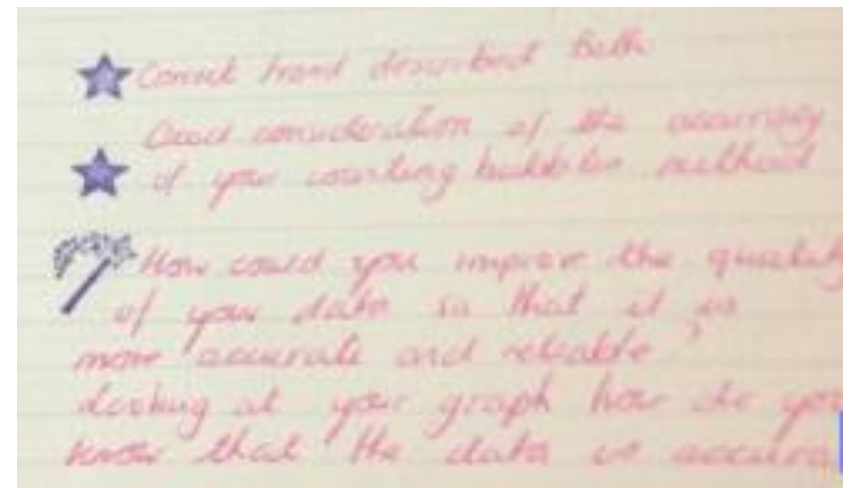 Correct trend described Beth
Good consideration of the accuracy
of your counting bubbles method
How could you improve the quality
of your data so that it is
more accurate and reliable?
Looking at your graph how do you
know that the data is accura